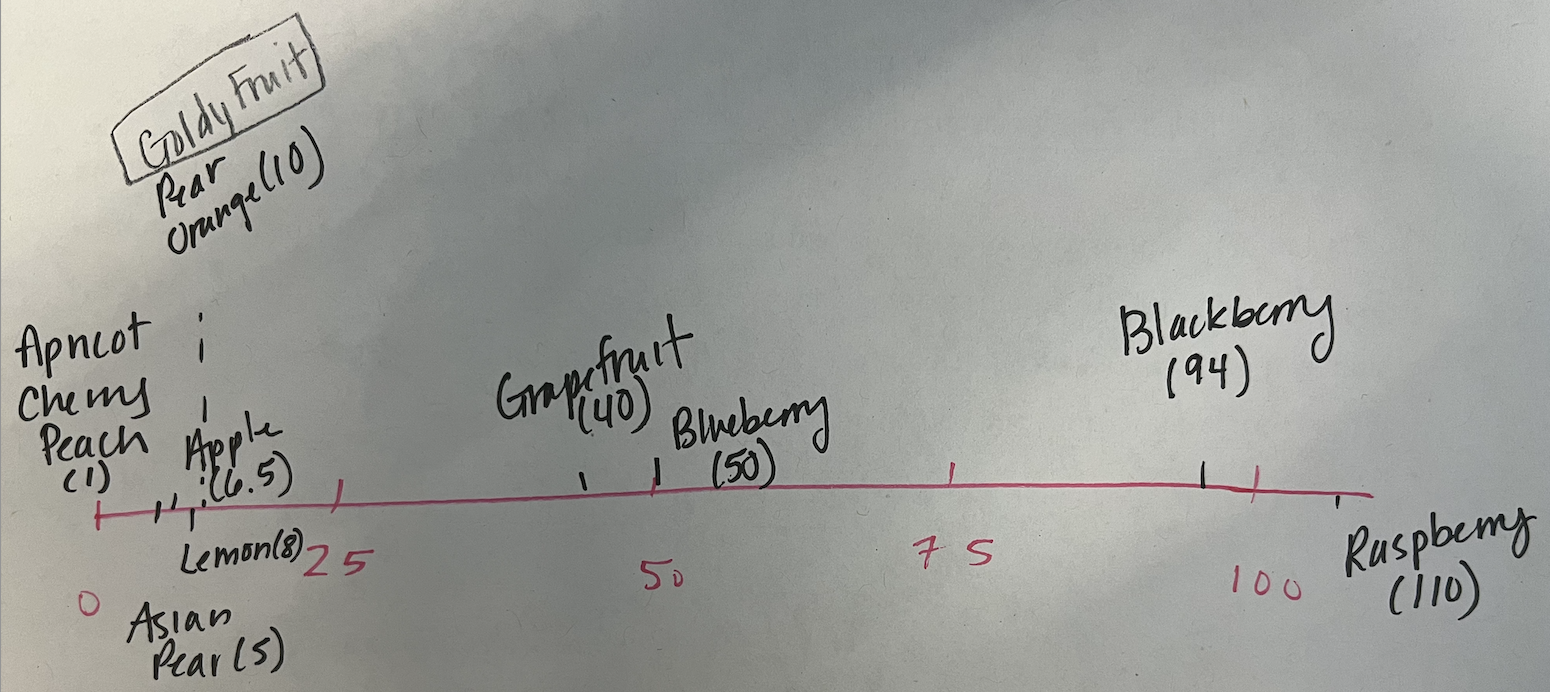 Goldy Fruit
Pear
Orange (10)
Apricot
Cherry
Peach
(1)
Apple
(6.5)
Grapefruit
(40)
Blueberry
(50)
Blackberry
(94)
Lemon (8)
0
25
50
75
100
Raspberry
(110)
Asian
Pear (5)